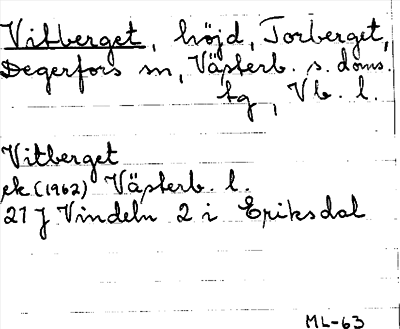 Vitberget, höjd, Torberget,
Degerfors sn, Västerb. s. doms.
tg, Vb. l.
Vitberget
ek (1962) Västerb. l.
21 J Vindeln 2 i Eriksdal
ML-63